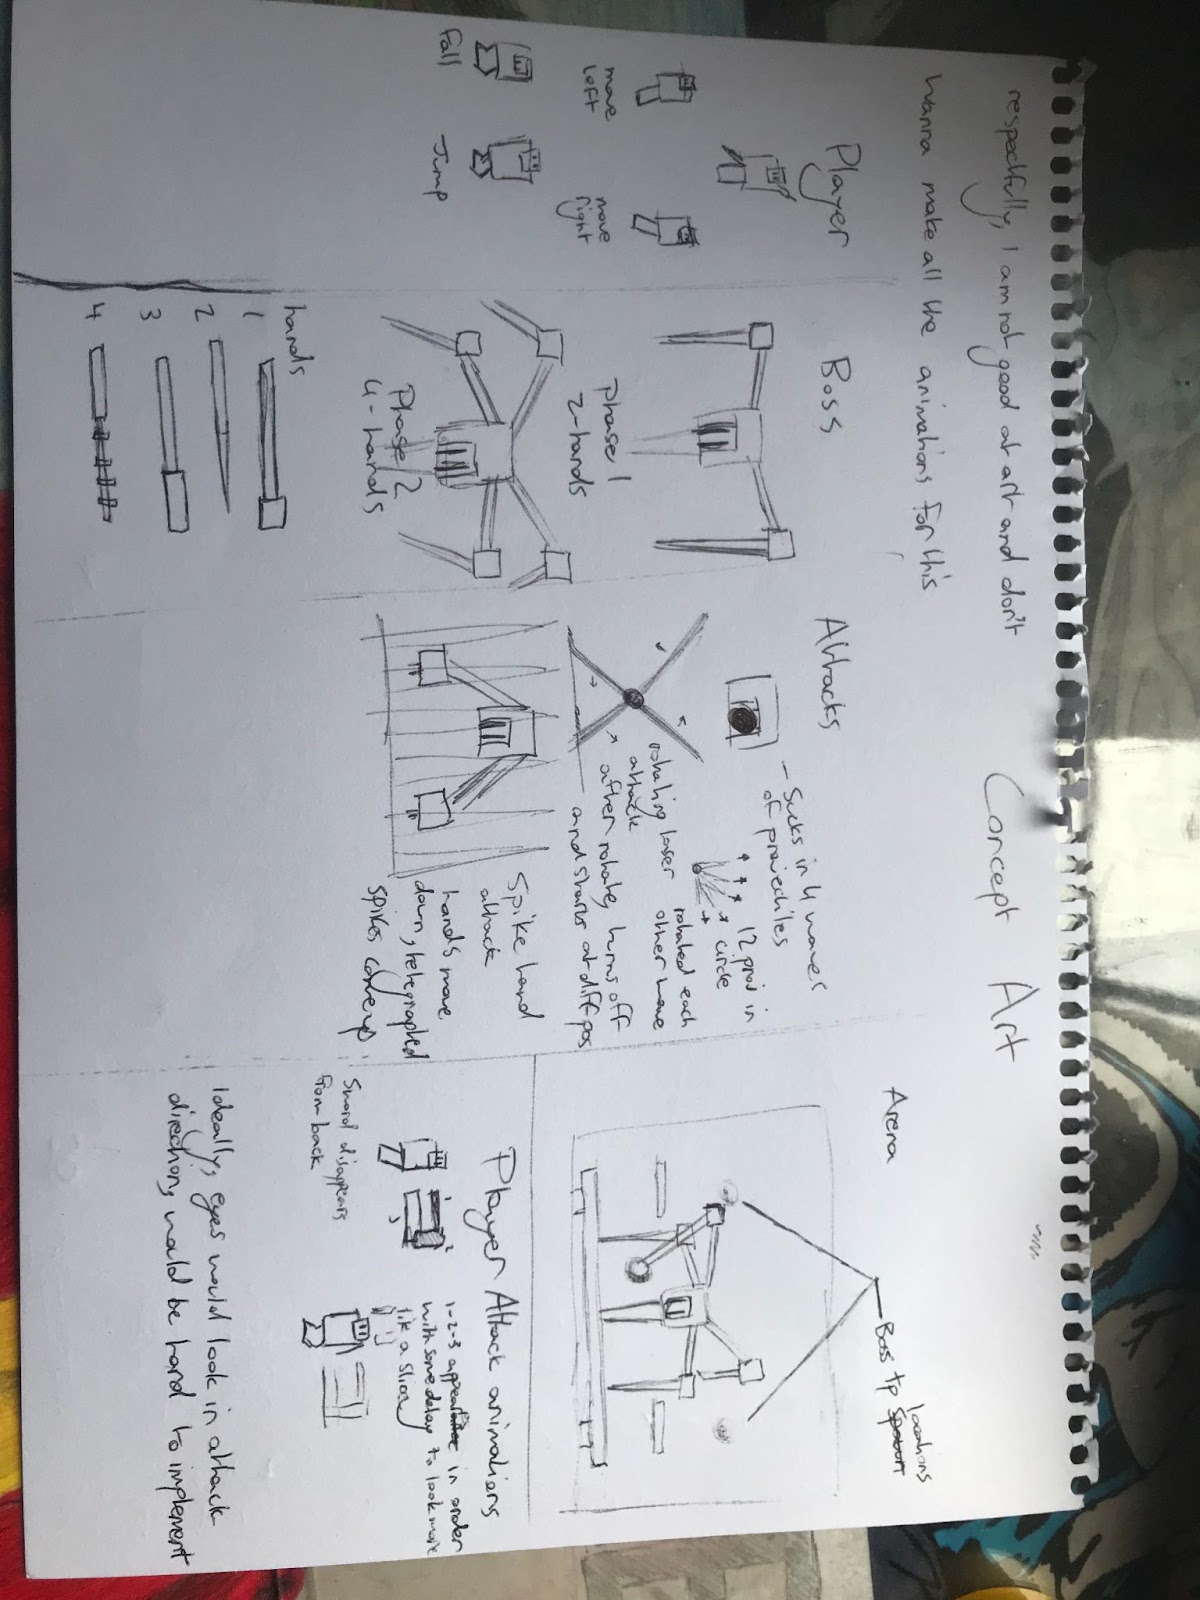 Concept Art
respectfully, I am not good at art and don't
wanna make all the animations for this
Player
move
left
move
right
fall
Jump
Boss
Phase 1
2-hands
Phase 2
4-hands
hands
1
2
3
4
Attacks
- Sucks in 4 waves
of projectiles
12 proj in
circle
rotated each
other wave
rotating laser
attack
after rotate, turns off
and starts at diff pos
Spike hand
attack
hands move
down, telegraphed
spikes come up
Arena
Boss tp locations
Player Attack animations
1
2
3
1-2-3 appear in order
with some delay to look more
like a slice
Sword disappears
from back
Ideally, eyes would look in attack
direction, would be hard to implement